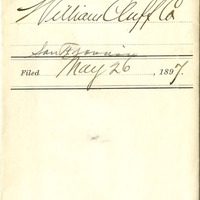 William Cluff Co
San Francisco
Filed May 26, 1897.